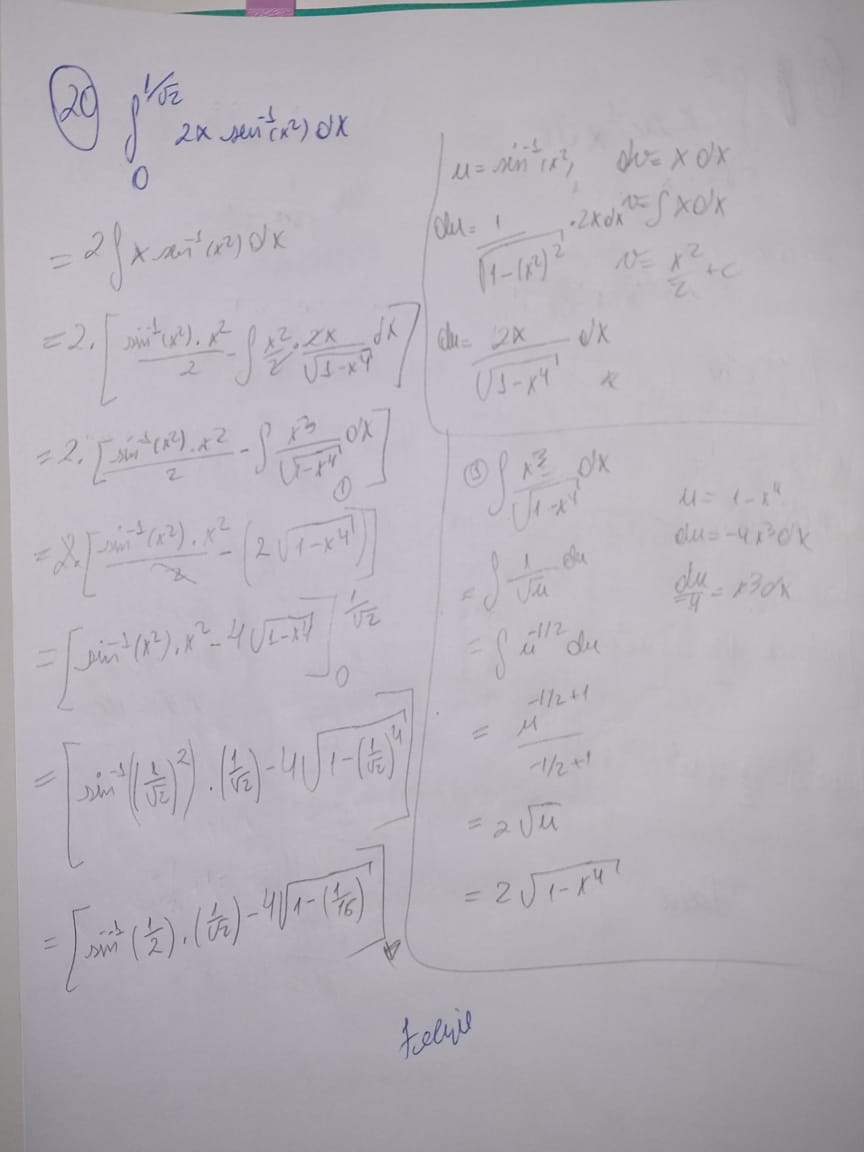 20 ∫_0^{1/√2} 2x sen⁻¹(x²) dx
= 2∫ x sen⁻¹(x²) dx
= 2. [ sin⁻¹(x²) . x² / 2 - ∫ x²/2 . 2x/√(1-x⁴) dx ]
= 2. [ sin⁻¹(x²) . x² / 2 - ∫ x³/√(1-x⁴) dx ]
①
= 2. [ sin⁻¹(x²) . x² / 2 - (2√(1-x⁴)) ]
= [ sin⁻¹(x²) . x² - 4√(1-x⁴) ]_0^{1/√2}
= [ sin⁻¹((1/√2)²) . (1/√2) - 4√(1-(1/√2)⁴) ]
= [ sin⁻¹(1/2) . (1/√2) - 4√(1-(1/16)) ]
u = sin⁻¹(x²) dv = x dx
du = 1/√(1-(x²)²) . 2x dx v = ∫ x dx
v = x²/2 + c
du = 2x/√(1-x⁴) dx
① ∫ x³/√(1-x⁴) dx
u = 1-x⁴
du = -4x³ dx
du/-4 = x3 dx
= ∫ 1/√u du
= ∫ u^{-1/2} du
= u^{-1/2+1} / -1/2+1
= 2√u
= 2√(1-x⁴)